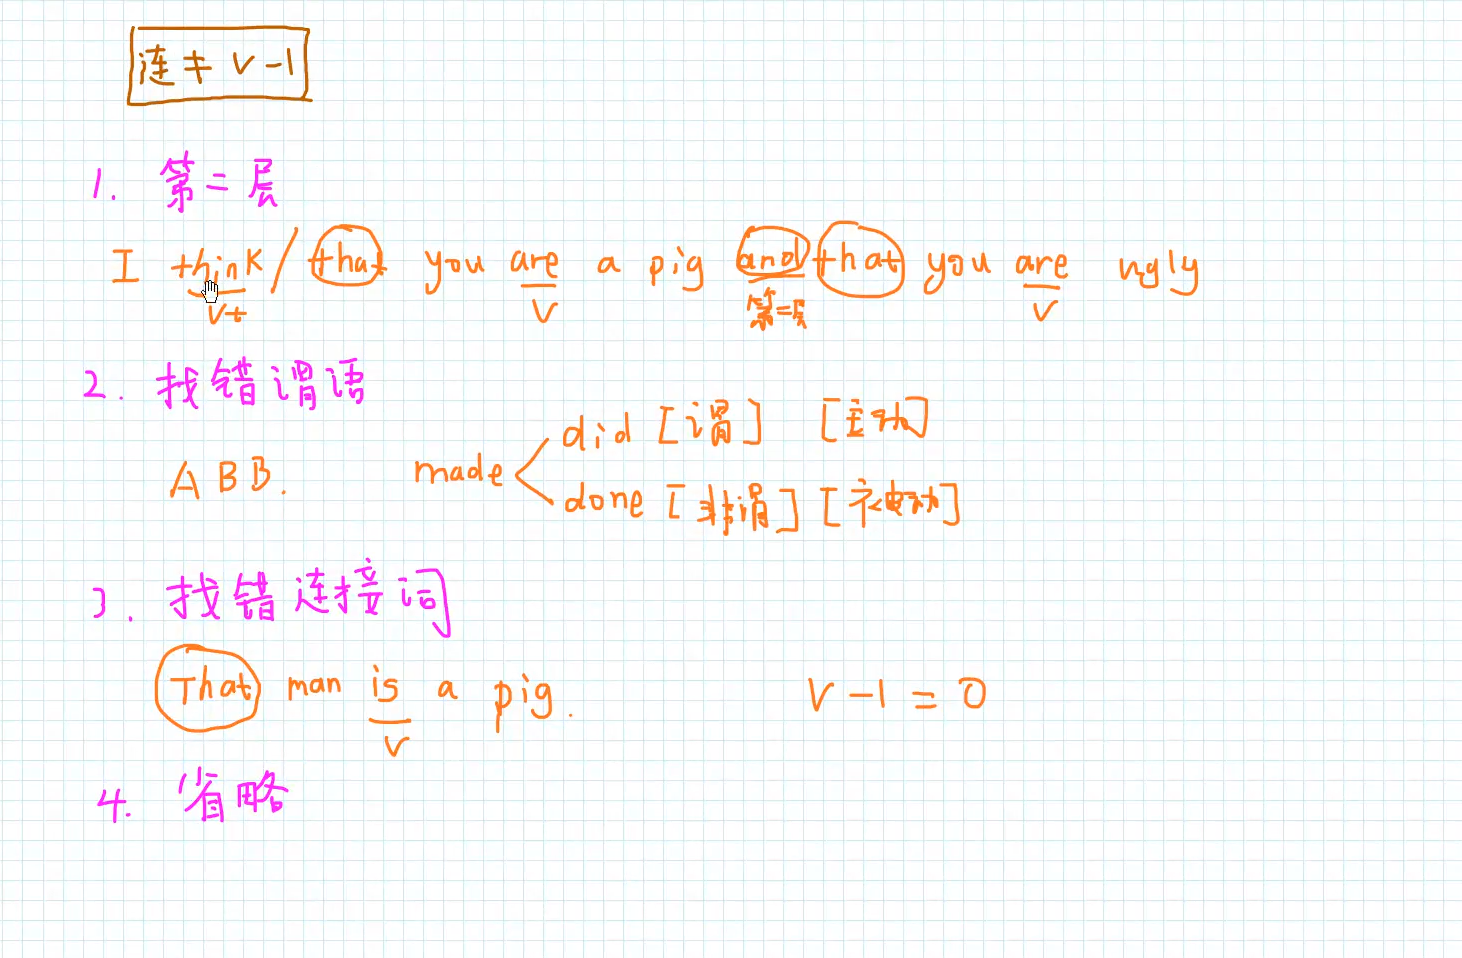 连≠V-1
1. 第二层
I think / that you are a pig and that you are ugly
Vt V 第二层 V
2. 找错谓语
did [谓] [主动]
ABB. made
done [非谓] [被动]
3. 找错连接词
That man is a pig. V-1=0
V
4. 省略